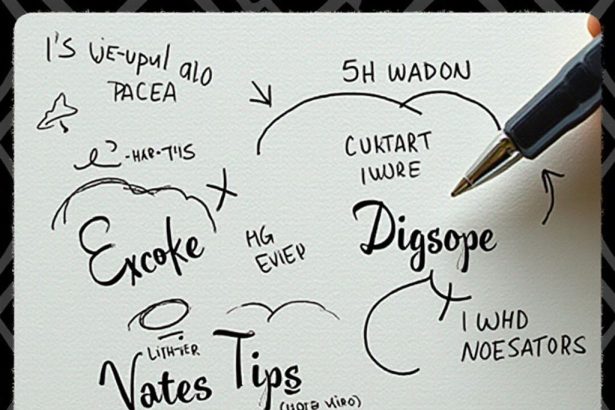 I'S WE-UPUl alO
PACEA
5H WADON
CUKTART
IWURE
-HAR-T'IS
Excoke
HG
EVIEP
Digsope
I WHD
NOESATORS
LITH-IER
Vates Tips